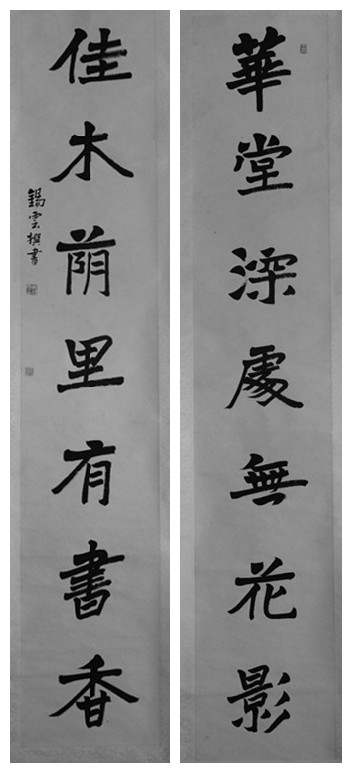 華堂深處無花影
佳木荫里有書香
錫雲撰書